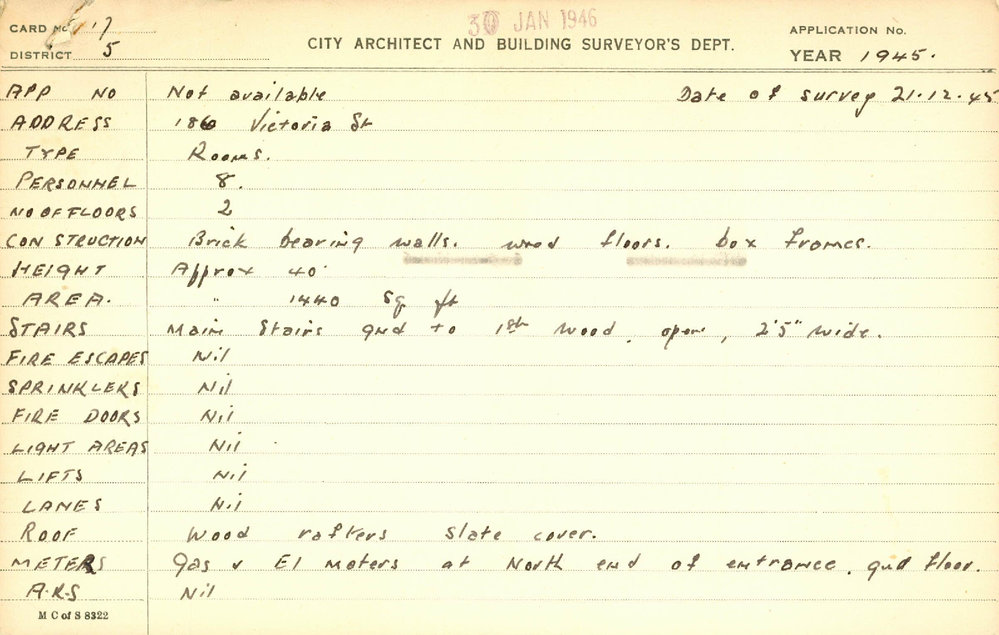 30 JAN 1946
CARD No 17
CITY ARCHITECT AND BUILDING SURVEYOR'S DEPT.
APPLICATION No.
DISTRICT 5
YEAR 1945.
APP NO Not available Date of survey 21.12.45
ADDRESS 186 Victoria St
TYPE Rooms.
PERSONNEL 8.
NO OF FLOORS 2
CONSTRUCTION Brick bearing walls. wood floors. box frames.
HEIGHT Approx 40'
AREA. " 1440 sq ft
STAIRS Main Stairs gnd to 1st wood, open, 2'5" wide.
FIRE ESCAPES Nil
SPRINKLERS Nil
FIRE DOORS Nil
LIGHT AREAS Nil
LIFTS Nil
LANES Nil
ROOF Wood rafters slate cover.
METERS Gas & El meters at North end of entrance, gnd floor.
A.R.S Nil
M C of S 8322